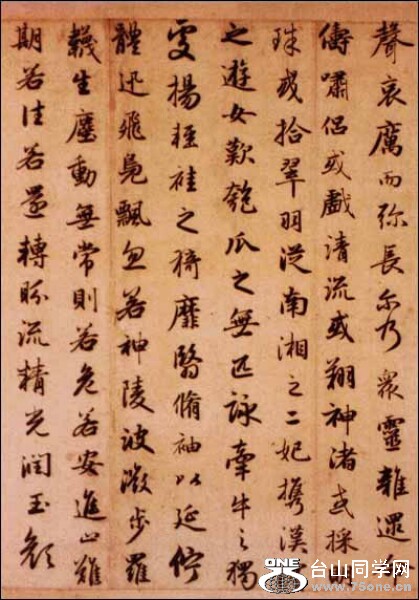 聲哀厲而弥長尔乃衆靈雜遝
儔嘯侣或戲清流或翔神渚或採
珠或拾翠羽從南湘之二妃攜漢
之遊女歎匏瓜之無匹詠牽牛之獨
處揚輕袿之猗靡翳脩袖以延佇
體迅飛鳧飄忽若神陵波微步羅
韈生塵動無常則若危若安進止難
期若往若還轉眄流精光潤玉顔
ONE
台山同学网
www.75one.com